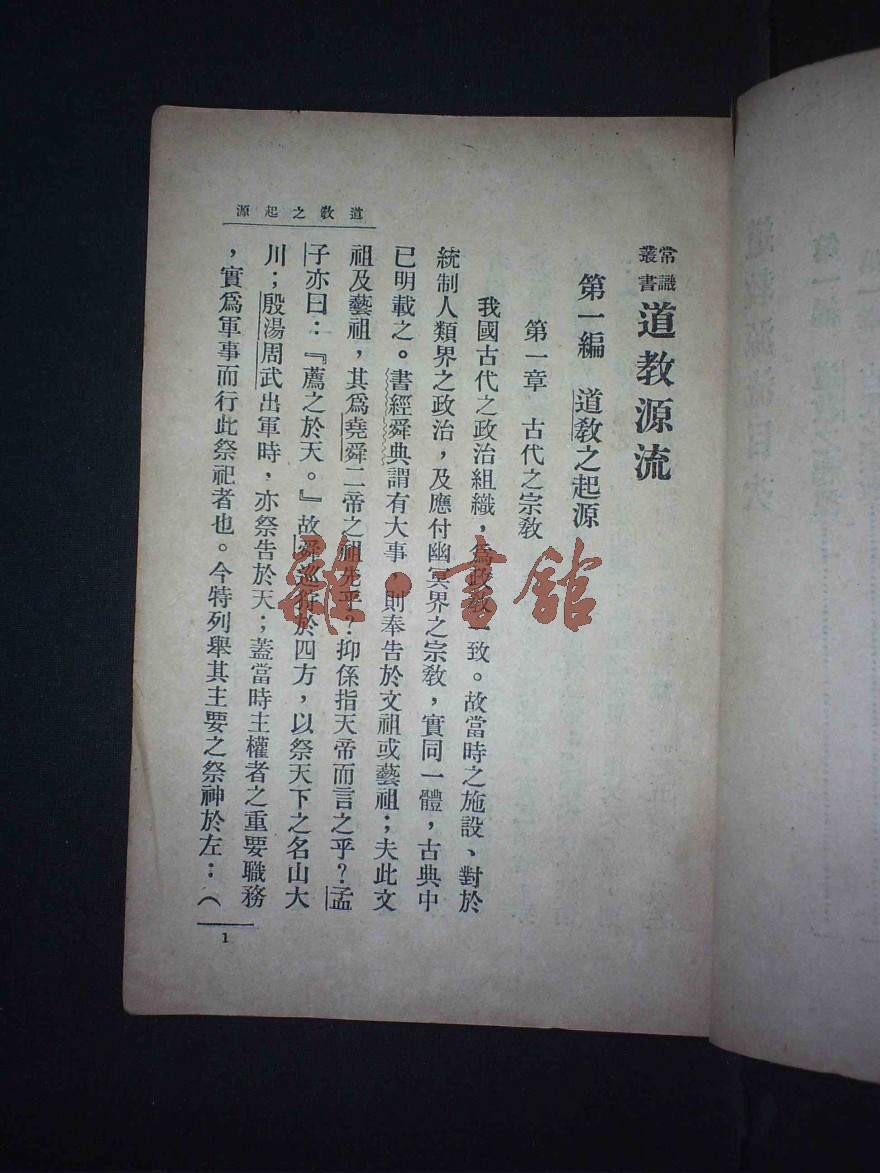 常識
叢書
道教源流
第一編　道教之起源
第一章　古代之宗教
我國古代之政治組織，爲政教一致。故當時之施設、對於
統制人類界之政治，及應付幽冥界之宗教，實同一體，古典中
已明載之。書經舜典謂有大事，則奉告於文祖或藝祖；夫此文
祖及藝祖，其爲堯舜二帝之祖先乎？抑係指天帝而言之乎？孟
子亦曰：『薦之於天。』故舜巡狩於四方，以祭天下之名山大
川；殷湯周武出軍時，亦祭告於天；蓋當時主權者之重要職務
，實爲軍事而行此祭祀者也。今特列舉其主要之祭神於左：（
道教之起源
1
雜·書館